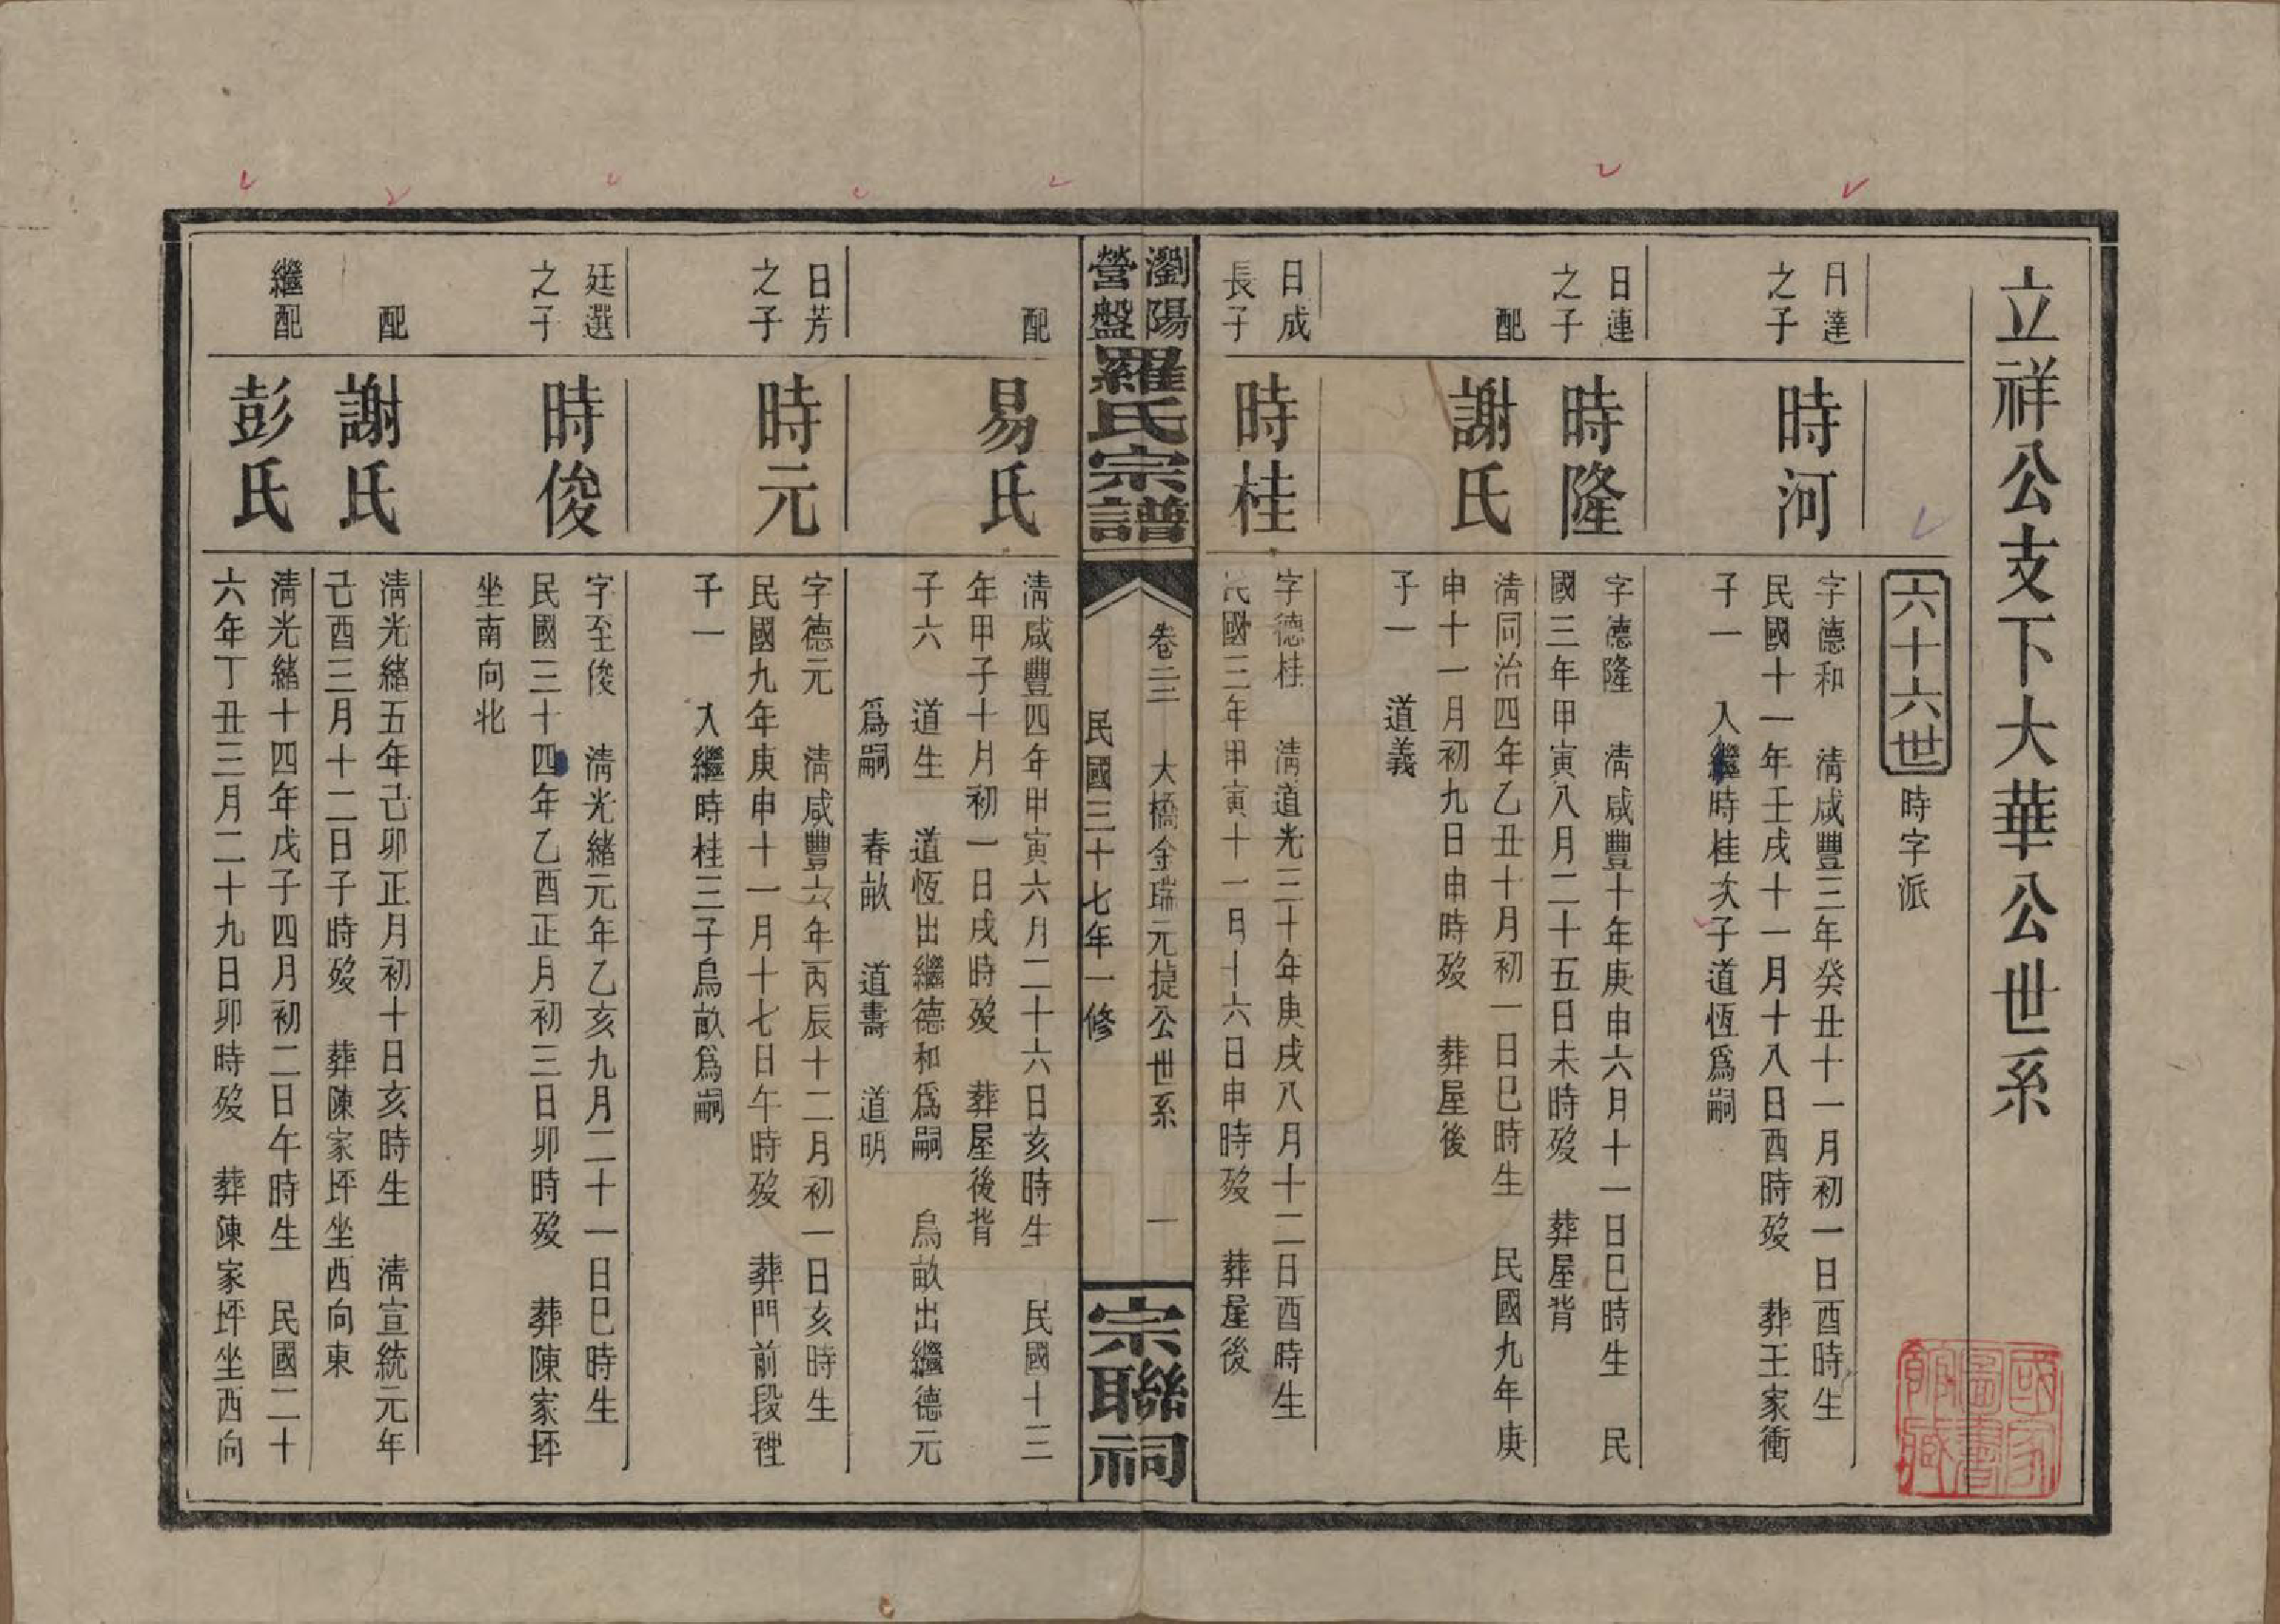 立祥公支下大華公世系
六十六世時字派
日達
之子
時河
字德和　清咸豐三年癸丑十一月初一日酉時生
民國十一年壬戌十一月十八日酉時歿　葬王家衝
子一　入繼時桂次子道恆爲嗣
日連
之子
時隆
字德隆　清咸豐十年庚申六月十一日巳時生　民
國三年甲寅八月二十五日未時歿　葬屋背
配
謝氏
清同治四年乙丑十月初一日巳時生　民國九年庚
申十一月初九日申時歿　葬屋後
子一　道義
日成
長子
時桂
字德桂　清道光三十年庚戌八月十二日酉時生
民國三年甲寅十一月十六日申時歿　葬屋後
瀏陽
營盤
羅氏宗譜
卷二三　大橋金瑞元㨗公世系　一
民國三十七年一修
宗聯祠
配
易氏
清咸豐四年甲寅六月二十六日亥時生　民國十三
年甲子十月初一日戌時歿　葬屋後背
子六　道生　道恆出繼德和爲嗣　烏畝出繼德元
爲嗣　春畝　道壽　道明
日芳
之子
時元
字德元　清咸豐六年丙辰十二月初一日亥時生
民國九年庚申十一月十七日午時歿　葬門前段裡
子一　入繼時桂三子烏畝爲嗣
廷選
之子
時俊
字至俊　清光緒元年乙亥九月二十一日巳時生
民國三十四年乙酉正月初三日卯時歿　葬陳家坪
坐南向北
配
謝氏
清光緒五年己卯正月初十日亥時生　清宣統元年
己酉三月十二日子時歿　葬陳家坪坐西向東
繼配
彭氏
清光緒十四年戊子四月初二日午時生　民國二十
六年丁丑三月二十九日卯時歿　葬陳家坪坐西向
國家
圖書
館藏